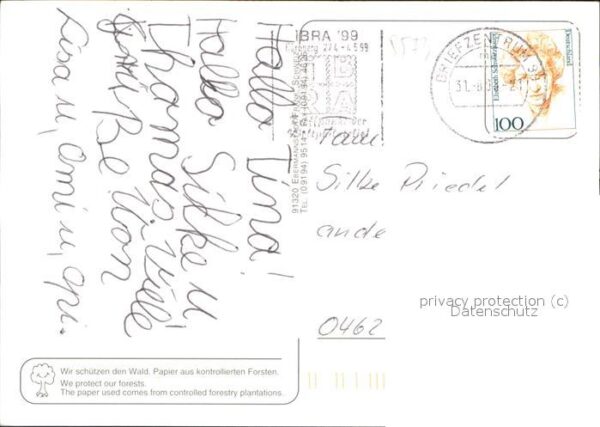 Hallo Tina!
Hallo Silke u
Thomas. Viele
Grüße von
Lisa u, Omi u, Opi.
IBRA '99
Nürnberg 27.4.-4.5.99
BRIEFZENTRUM
31.-8.
Deutschland
100
91320 EBERMANNSTADT
Silke Riedel
ande
0462
privacy protection (c)
Datenschutz
Wir schützen den Wald. Papier aus kontrollierten Forsten.
We protect our forests.
The paper used comes from controlled forestry plantations.